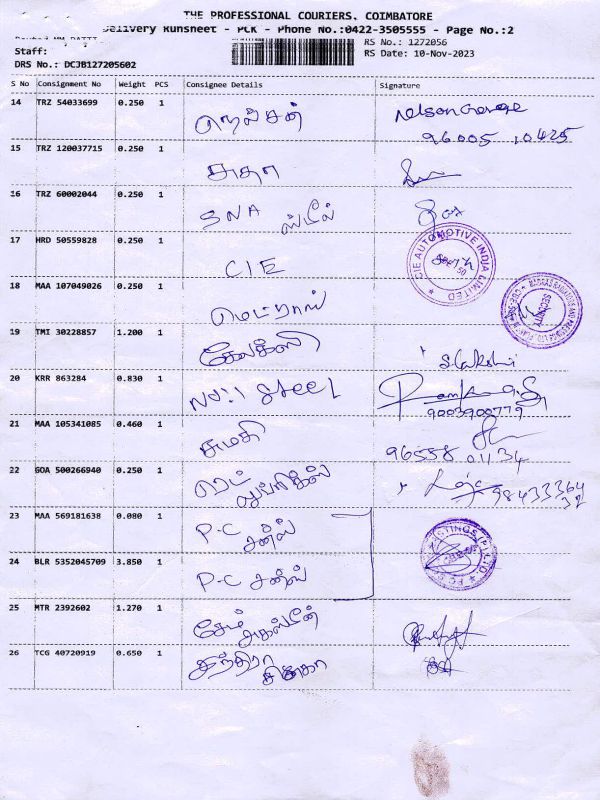 THE PROFESSIONAL COURIERS, COIMBATORE
Delivery Runsheet - PCK - Phone No.:0422-3505555 - Page No.:2
Staff:
RS No.: 1272056
DRS No.: DCJB127205602
RS Date: 10-Nov-2023
S No Consignment No Weight PCS Consignee Details Signature
14 TRZ 54033699 0.250 1 நெல்சன் Nelson George
96005 10425
15 TRZ 120037715 0.250 1 சுதா
16 TRZ 60002044 0.250 1 SNA ஸ்டீல்
17 HRD 50559828 0.250 1 CIE CIE AUTOMOTIVE INDIA LIMITED
18 MAA 107049026 0.250 1 மெட்ராஸ் SECURITY
19 TMI 30228857 1.200 1 கேலக்ஸி
20 KRR 863284 0.830 1 No:1 Steel
9003900779
21 MAA 105341085 0.460 1 சுமதி
96558 01134
22 GOA 500266940 0.250 1 ரெட் லூப்ரிகேன்ஸ் Raja 98433364
32
23 MAA 569181638 0.080 1 P.C சன்ஸ்
24 BLR 5352045709 3.850 1 P.C சன்ஸ்
25 MTR 2392602 1.270 1 சேம்
26 TCG 40720919 0.650 1 சந்திரா